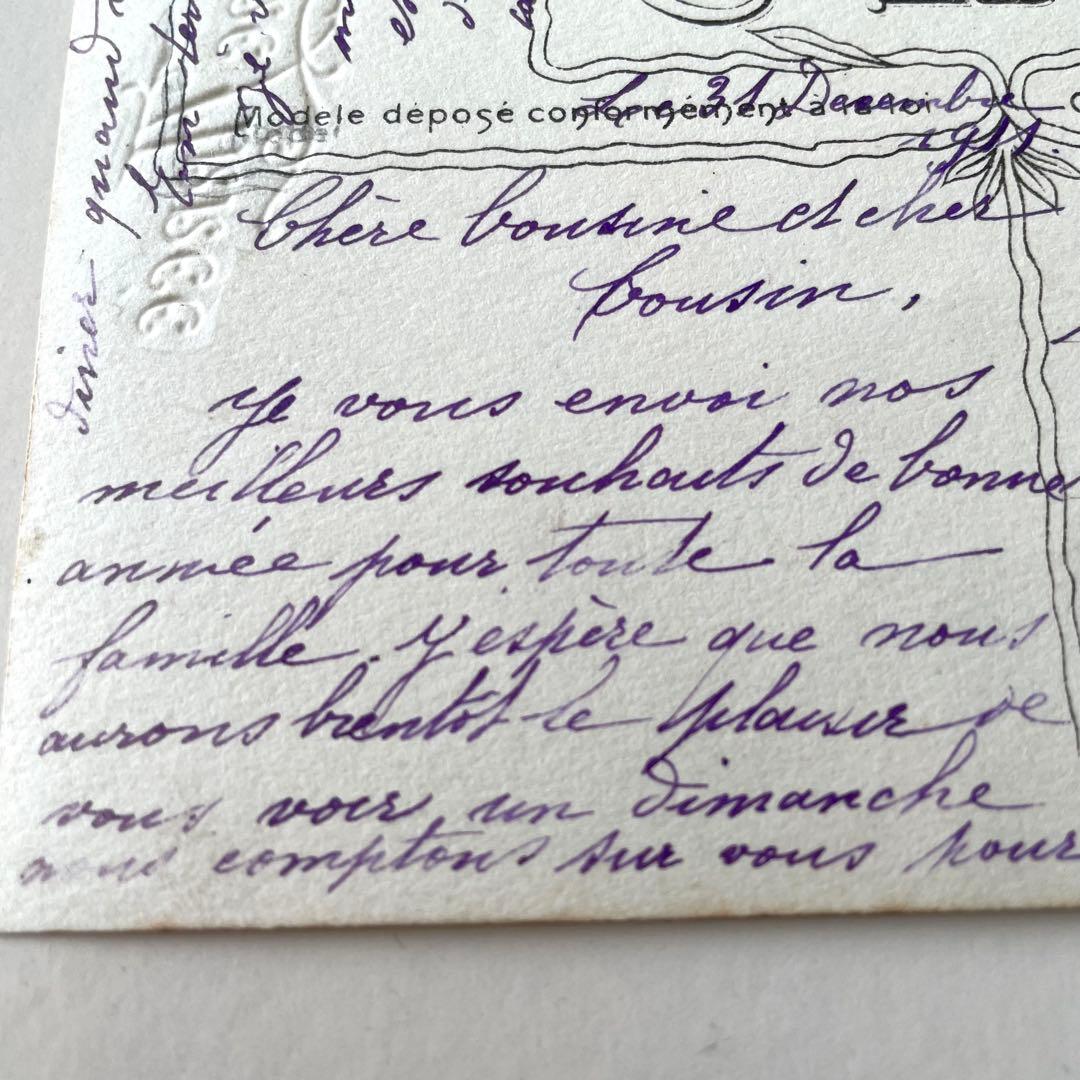 Modèle déposé conformément à la loi
Le 31 Decembre
1911.
Chère Cousine et cher
Cousin,
Je vous envoi nos
meilleurs souhaits de bonne
année pour toute la
famille. J'espère que nous
aurons bientôt le plaisir de
vous voir un dimanche
nous comptons sur vous pour
diner quand